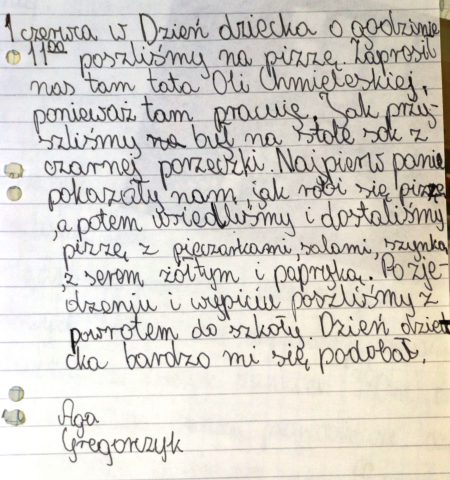 1 czerwca w Dzień dziecka o godzinie
11⁰⁰ poszliśmy na pizzę. Zaprosił
nas tam tata Oli Chmieleskiej,
ponieważ tam pracuję. Jak przy-
szliśmy na był na stole sok z
czarnej porzeczki. Najpierw panie
pokazały nam, jak robi się pizzę
, a potem wiedliśmy i dostaliśmy
pizzę, z pieczarkami, salami, szynką
, z serem żółtym i papryką. Po zje-
dzeniu i wypiciu poszliśmy z
powrotem do szkoły. Dzień dzie-
cka bardzo mi się podobał.
Aga
Gregorczyk